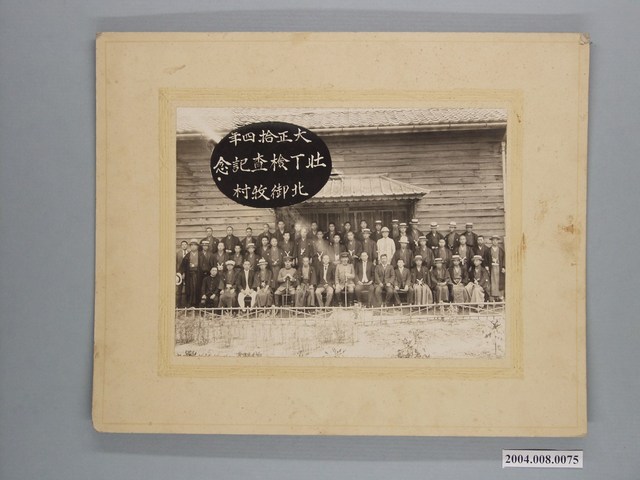 大正拾四年
壯丁檢查記念
北御牧村
2004.008.0075